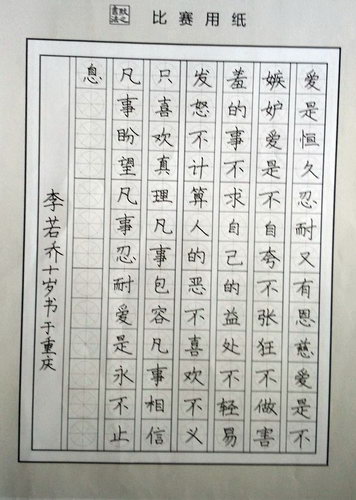 比赛用纸
爱是恒久忍耐又有恩慈爱是不
嫉妒爱是不自夸不张狂不做害
羞的事不求自己的益处不轻易
发怒不计算人的恶不喜欢不义
只喜欢真理凡事包容凡事相信
凡事盼望凡事忍耐爱是永不止
息
李若乔十岁书于重庆